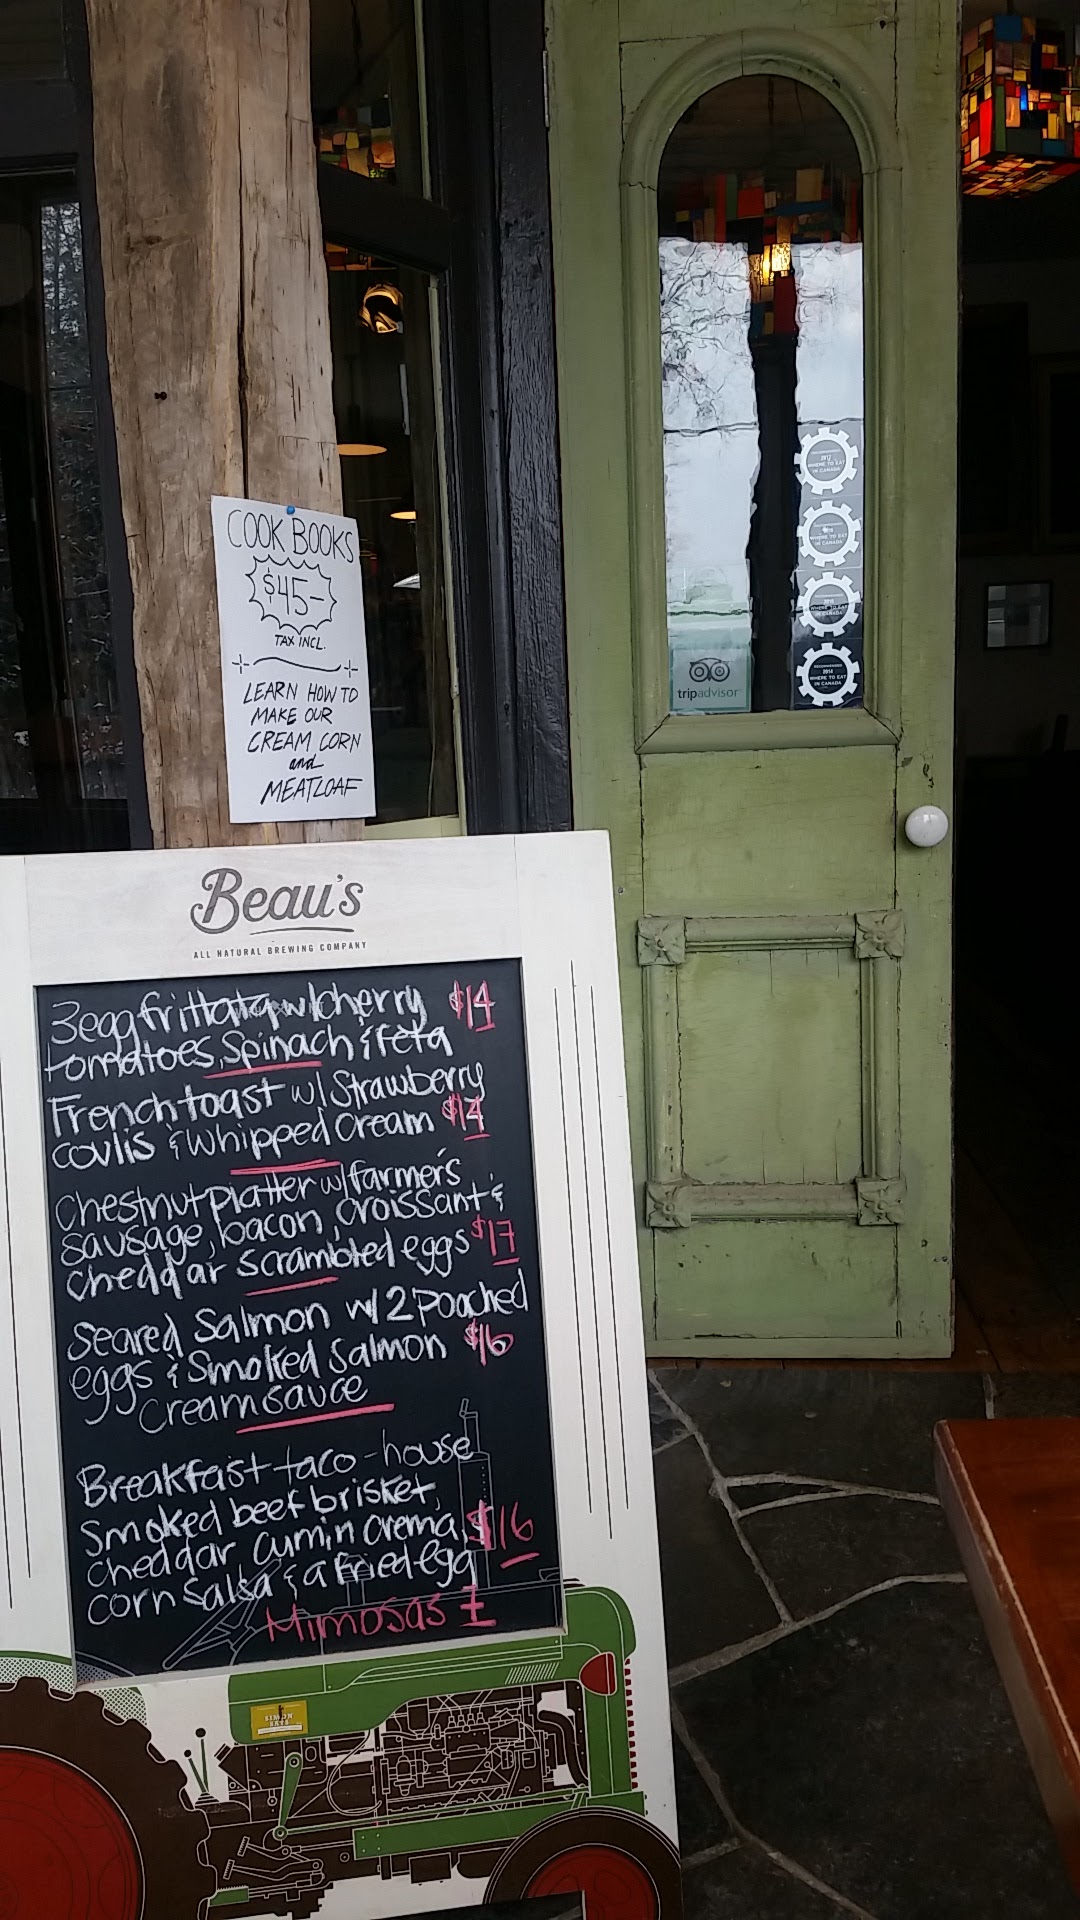 COOK BOOKS
$45-
TAX INCL.
LEARN HOW TO
MAKE OUR
CREAM CORN
and
MEATLOAF
2017
WHERE TO EAT
IN CANADA
WHERE TO EAT
IN CANADA
WHERE TO EAT
IN CANADA
RECOMMENDED
2014
WHERE TO EAT
IN CANADA
tripadvisor
Beau's
ALL NATURAL BREWING COMPANY
3egg frittata w/cherry $14
tomatoes, Spinach & feta
French toast w/ Strawberry
coulis & whipped cream $14
Chestnut Platter w/ farmer's
sausage, bacon, croissant &
cheddar scrambled eggs $17
Seared Salmon w/ 2 poached
eggs & Smoked Salmon $16
Cream sauce
Breakfast taco - house
Smoked beef brisket,
cheddar, cumin crema, $16
corn salsa & a fried egg
Mimosas 7